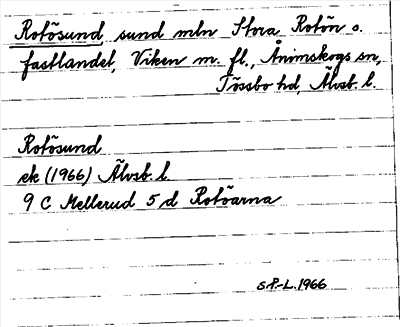 Rotösund, sund mln Stora Rotön o.
fastlandet, Viken m. fl., Ånimskogs sn,
Tössbo hd, Älvsb. l.
Rotösund
ek (1966) Älvsb. l.
9 C Mellerud 5 d Rotöarna
S P-L. 1966